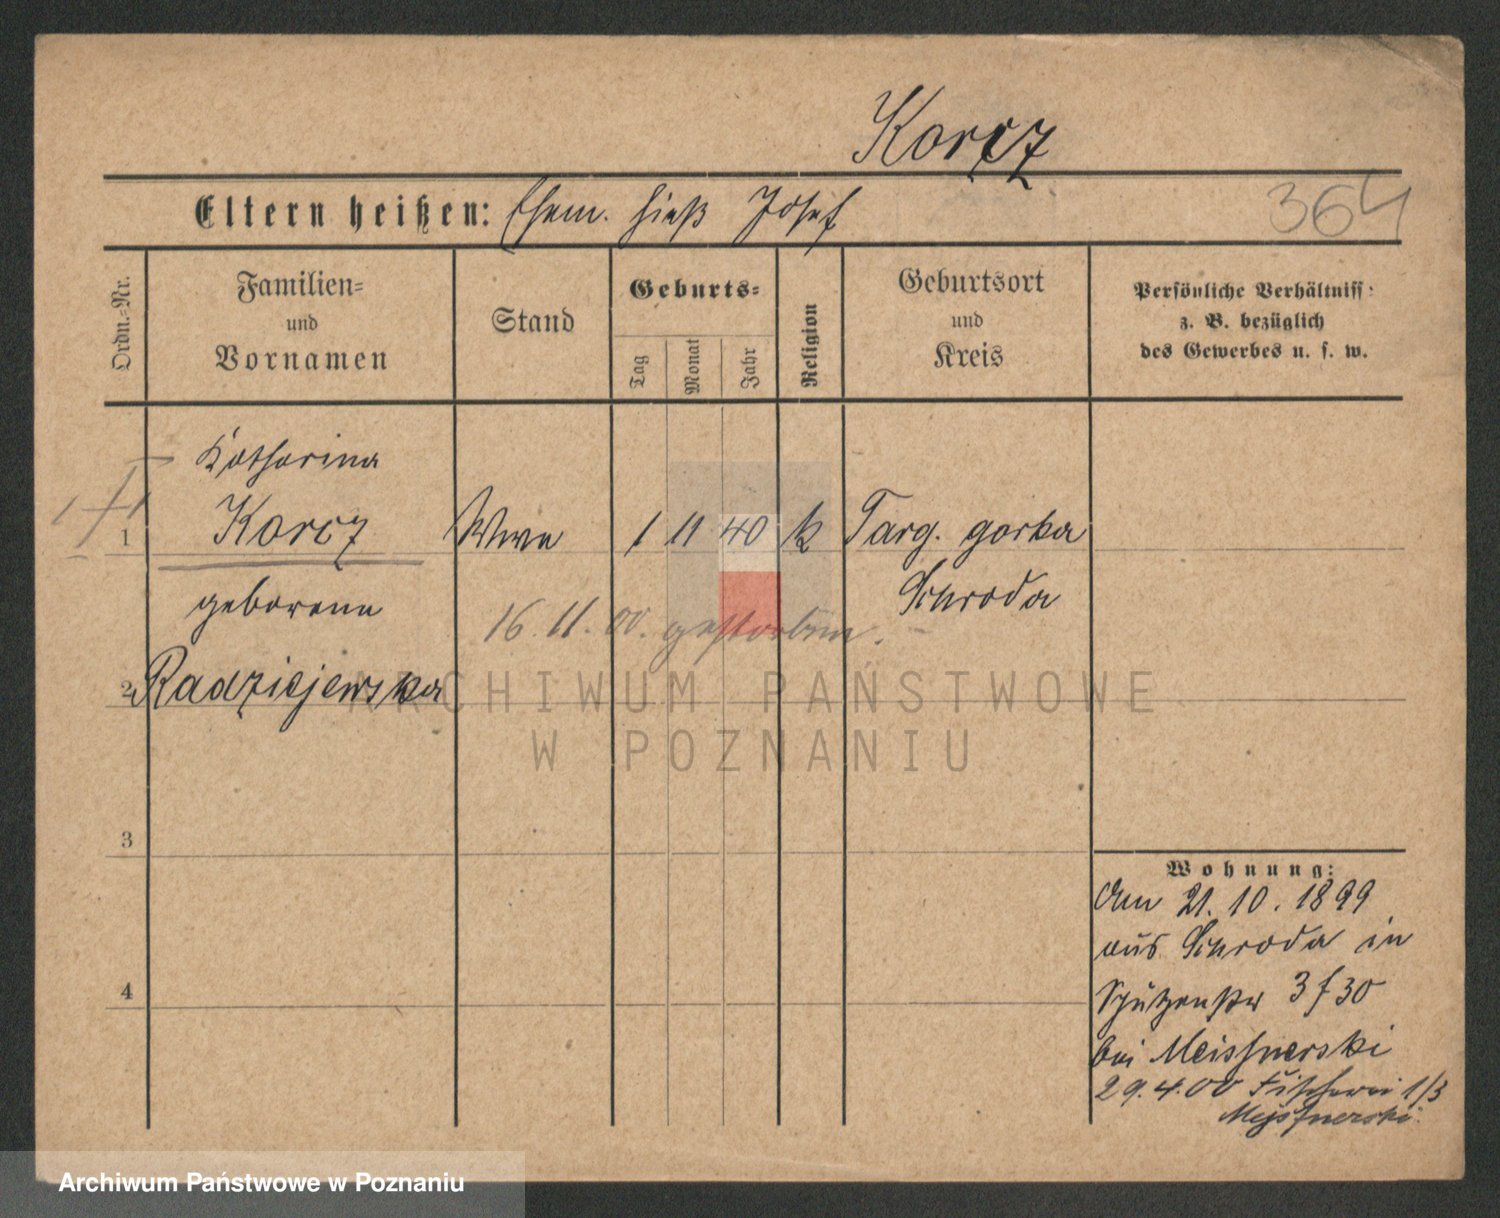 Korcz
Eltern heißen: Ehem. hieß Josef
364
Ordn.-Nr.
Familien-
und
Vornamen
Stand
Geburts-
Tag
Monat
Jahr
Religion
Geburtsort
und
Kreis
Persönliche Verhältniss
z. B. bezüglich
des Gewerbes u. s. w.
Katharina
1 Korcz Wwe 1 11 40 k Targ. gorka
geborene Schroda
16. 11. 00. gestorben.
2 Radziejewska
ARCHIWUM PAŃSTWOWE
W POZNANIU
3
4
Wohnung:
Am 21. 10. 1899
aus Schroda in
Schützenstr 3 f 30
bei Meissnerski
29. 4. 00 Fischerei 1/3
Mejssnerski.
Archiwum Państwowe w Poznaniu